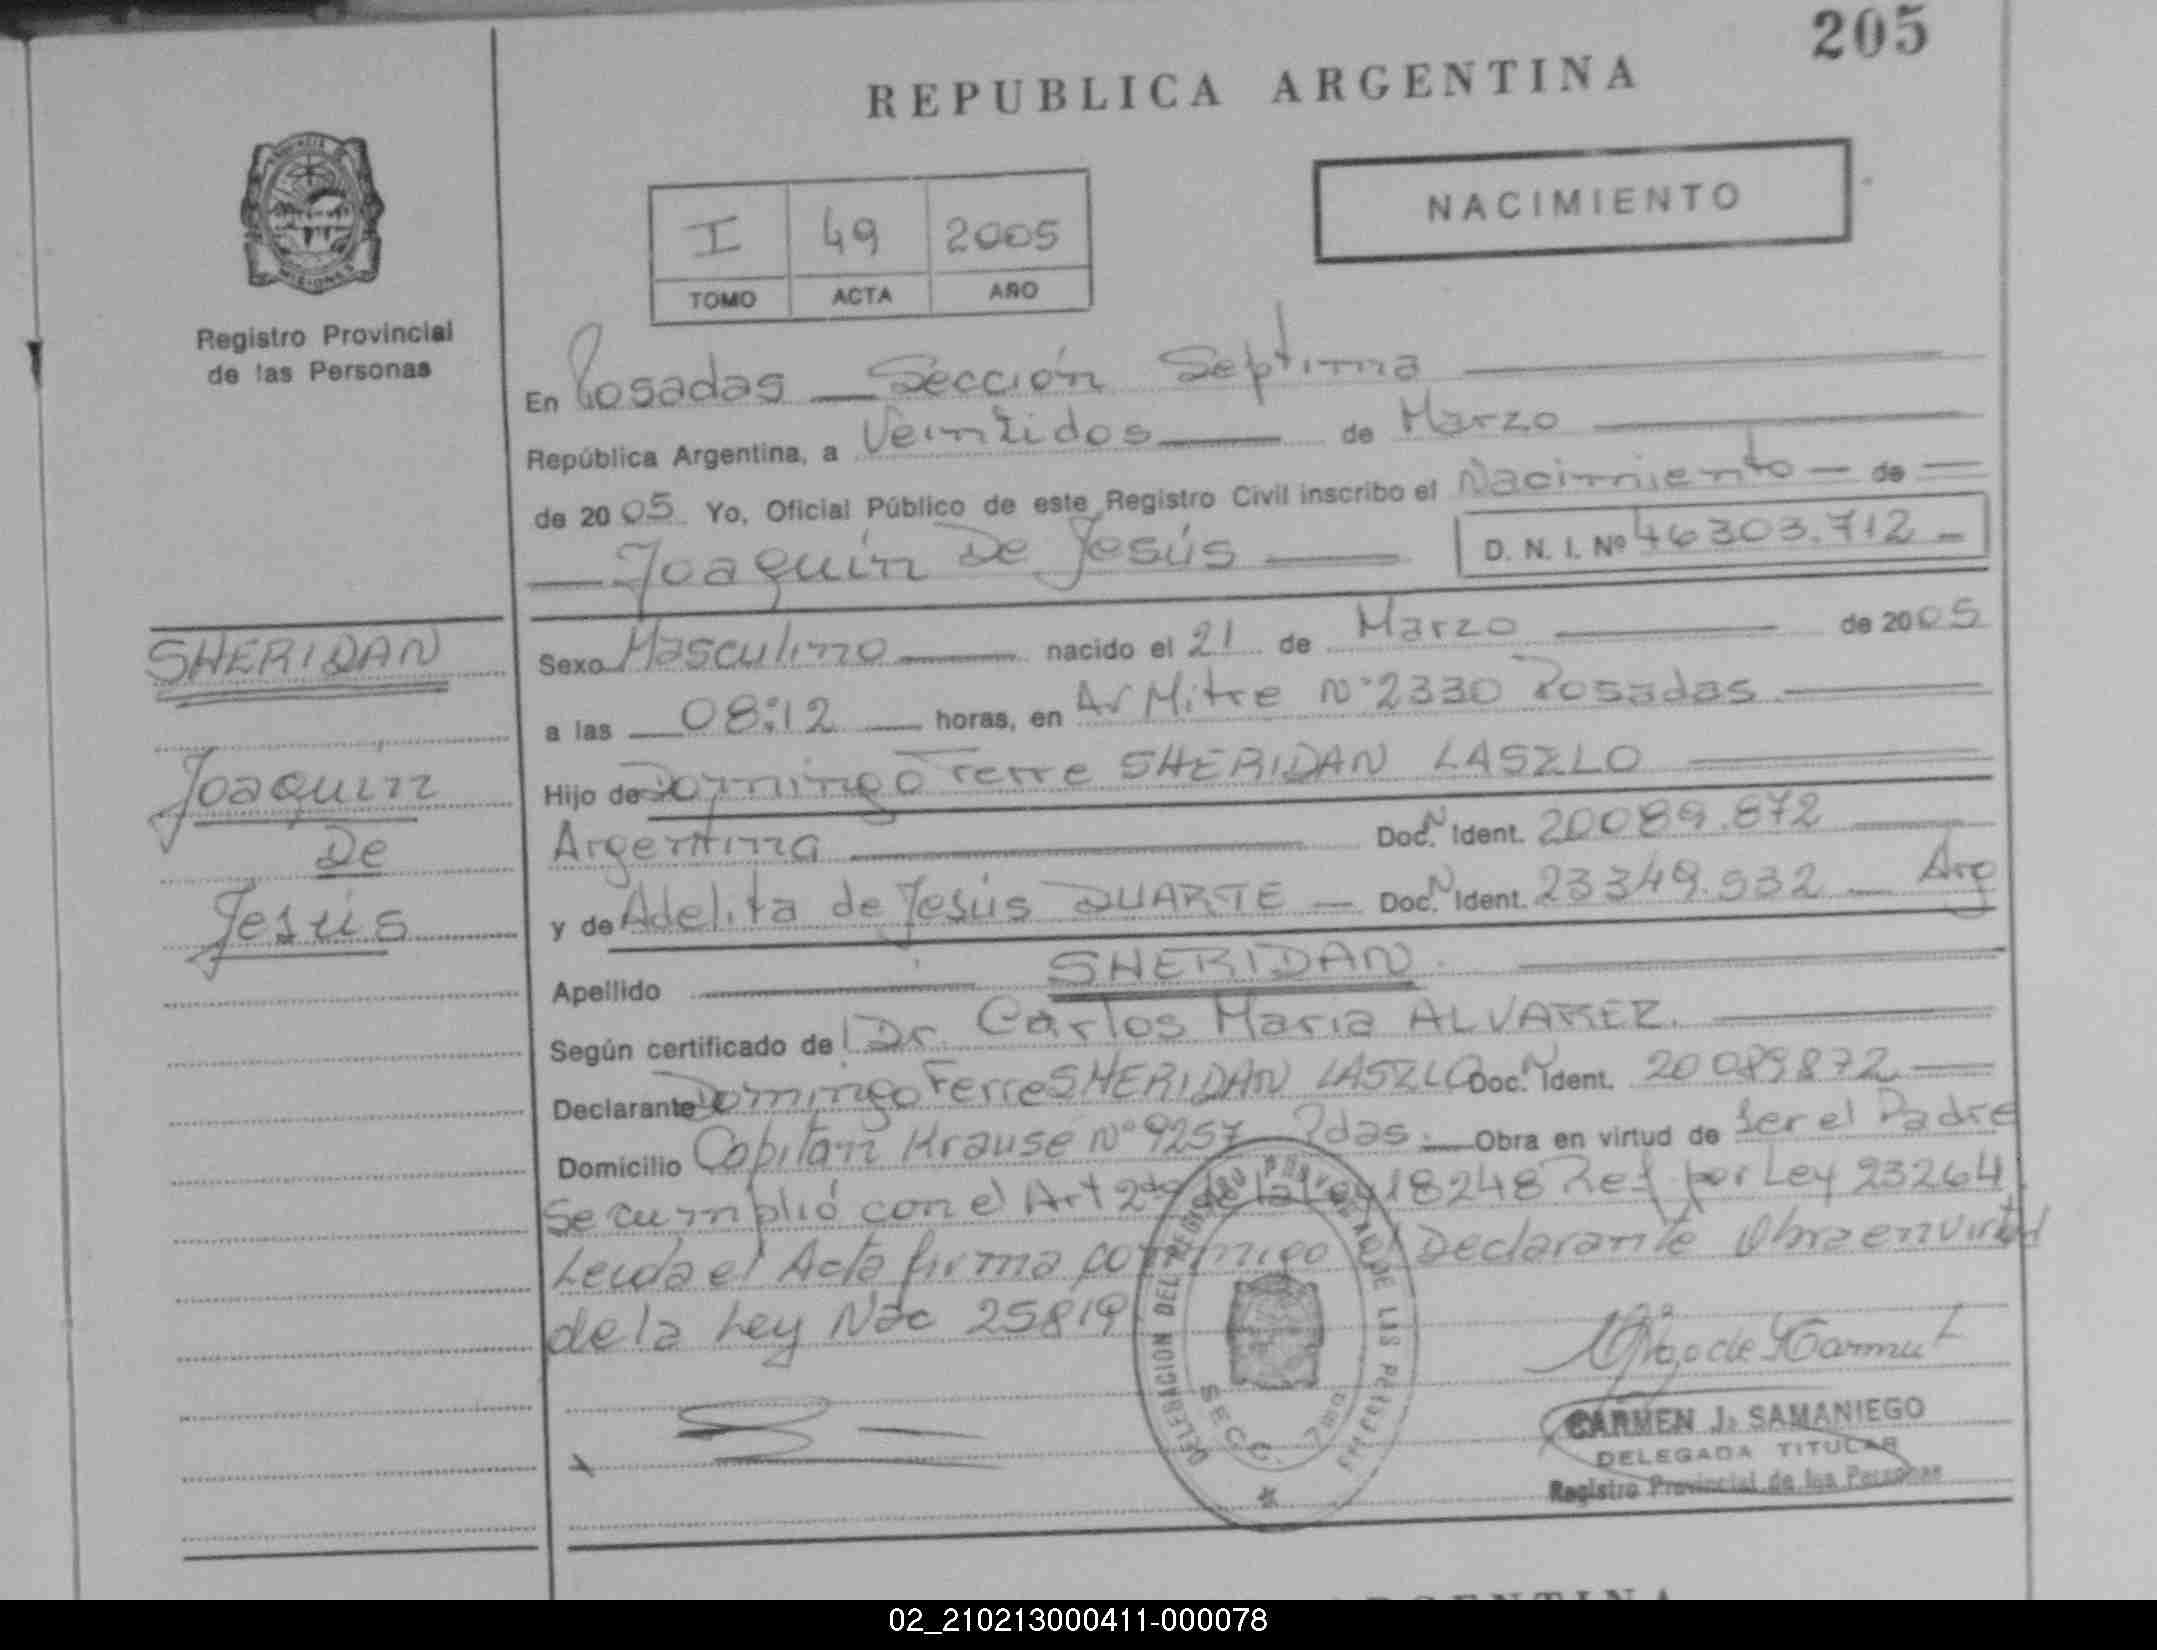 205
REPUBLICA ARGENTINA
NACIMIENTO
I 49 2005
TOMO ACTA AÑO
Registro Provincial
de las Personas
En Posadas — Sección Septima
República Argentina, a Veintidos de Marzo
de 2005 Yo, Oficial Público de este Registro Civil inscribo el Nacimiento — de —
Joaquín De Jesús
D. N. I. Nº 46303.712 —
SHERIDAN
Joaquín
De
Jesús
Sexo Masculino nacido el 21 de Marzo de 2005
a las 08:12 horas, en Av Mitre Nº 2330 Posadas
Hijo de Domingo Ferre SHERIDAN LASZLO
Argentina Doc. N Ident. 20089.872
y de Adelita de Jesús DUARTE — Doc. N Ident. 23349.532 — Arg
Apellido SHERIDAN
Según certificado de Dr. Carlos Maria ALVAREZ.
Declarante Domingo Ferre SHERIDAN LASZLO Doc. N Ident. 20089872
Domicilio Capitán Krause Nº 9257 Pdas. — Obra en virtud de Ser el Padre
Se cumplió con el Art 2do de la Ley 18248 Ref. por Ley 23264
Leida el Acta firma conmigo el Declarante Obra en virtud
de la Ley Nac 25819
DELEGACION DEL REGISTRO PROVINCIAL DE LAS PERSONAS
SECC. 7ma
CARMEN J. SAMANIEGO
DELEGADA TITULAR
Registro Provincial de las Personas
ARGENTINA
02_210213000411-000078